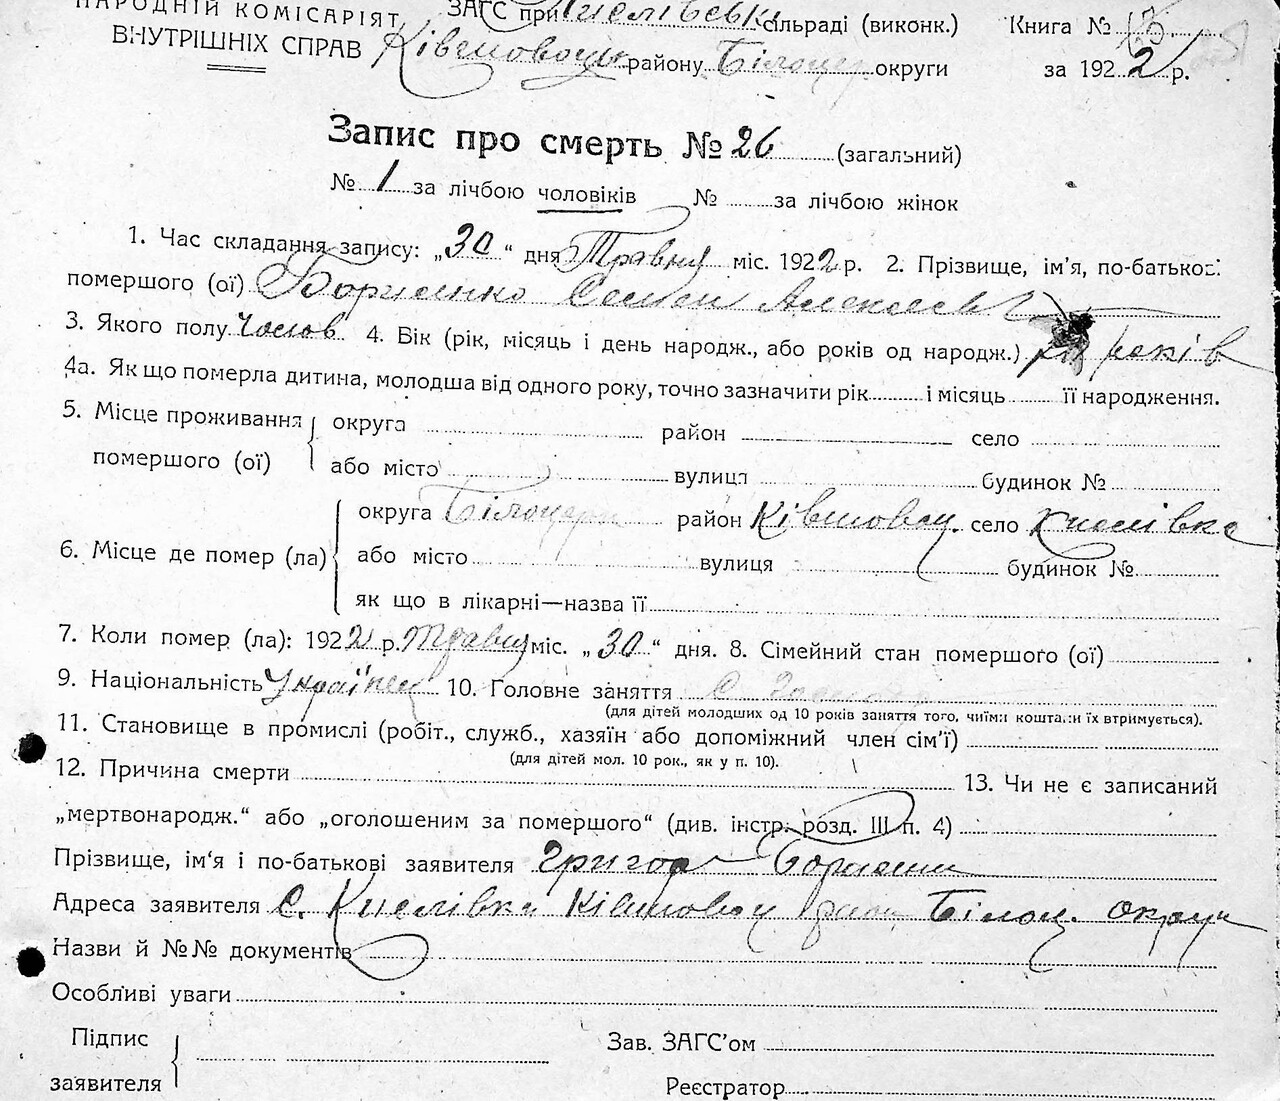 НАРОДНІЙ КОМІСАРІЯТ ЗАГС при Кислівські сільраді (виконк.) Книга №
ВНУТРІШНІХ СПРАВ Ківшовоцьк району Білоцер округи за 1922 р.
Запис про смерть № 26 (загальний)
№ 1 за лічбою чоловіків № за лічбою жінок
1. Час складання запису: „30“ дня Травня міс. 1922 р. 2. Прізвище, ім'я, по-батькові
помершого (ої) Борисенко Семен Алексеев
3. Якого полу Чолов 4. Вік (рік, місяць і день народж., або років од народж.) років
4а. Як що померла дитина, молодша від одного року, точно зазначити рік і місяць її народження.
5. Місце проживання помершого (ої) округа район село
або місто вулиця будинок №
6. Місце де помер (ла) округа Білоцерк район Ківшовац. село Кислівка
або місто вулиця будинок №
як що в лікарні—назва її
7. Коли помер (ла): 1922 р. Травня міс. „30“ дня. 8. Сімейний стан помершого (ої)
9. Національність Українец 10. Головне заняття С.
(для дітей молодших од 10 років заняття того, чиїми коштами їх втримується).
11. Становище в промислі (робіт., служб., хазяїн або допоміжний член сім'ї)
(для дітей мол. 10 рок., як у п. 10).
12. Причина смерти 13. Чи не є записаний
„мертвонародж.“ або „оголошеним за помершого“ (див. інстр. розд. III п. 4)
Прізвище, ім'я і по-батькові заявителя Григор Борисенко
Адреса заявителя С. Кислівка Ківшовац район Білоц. округи
Назви й №№ документів
Особливі уваги
Підпис заявителя
Зав. ЗАГС'ом
Реєстратор